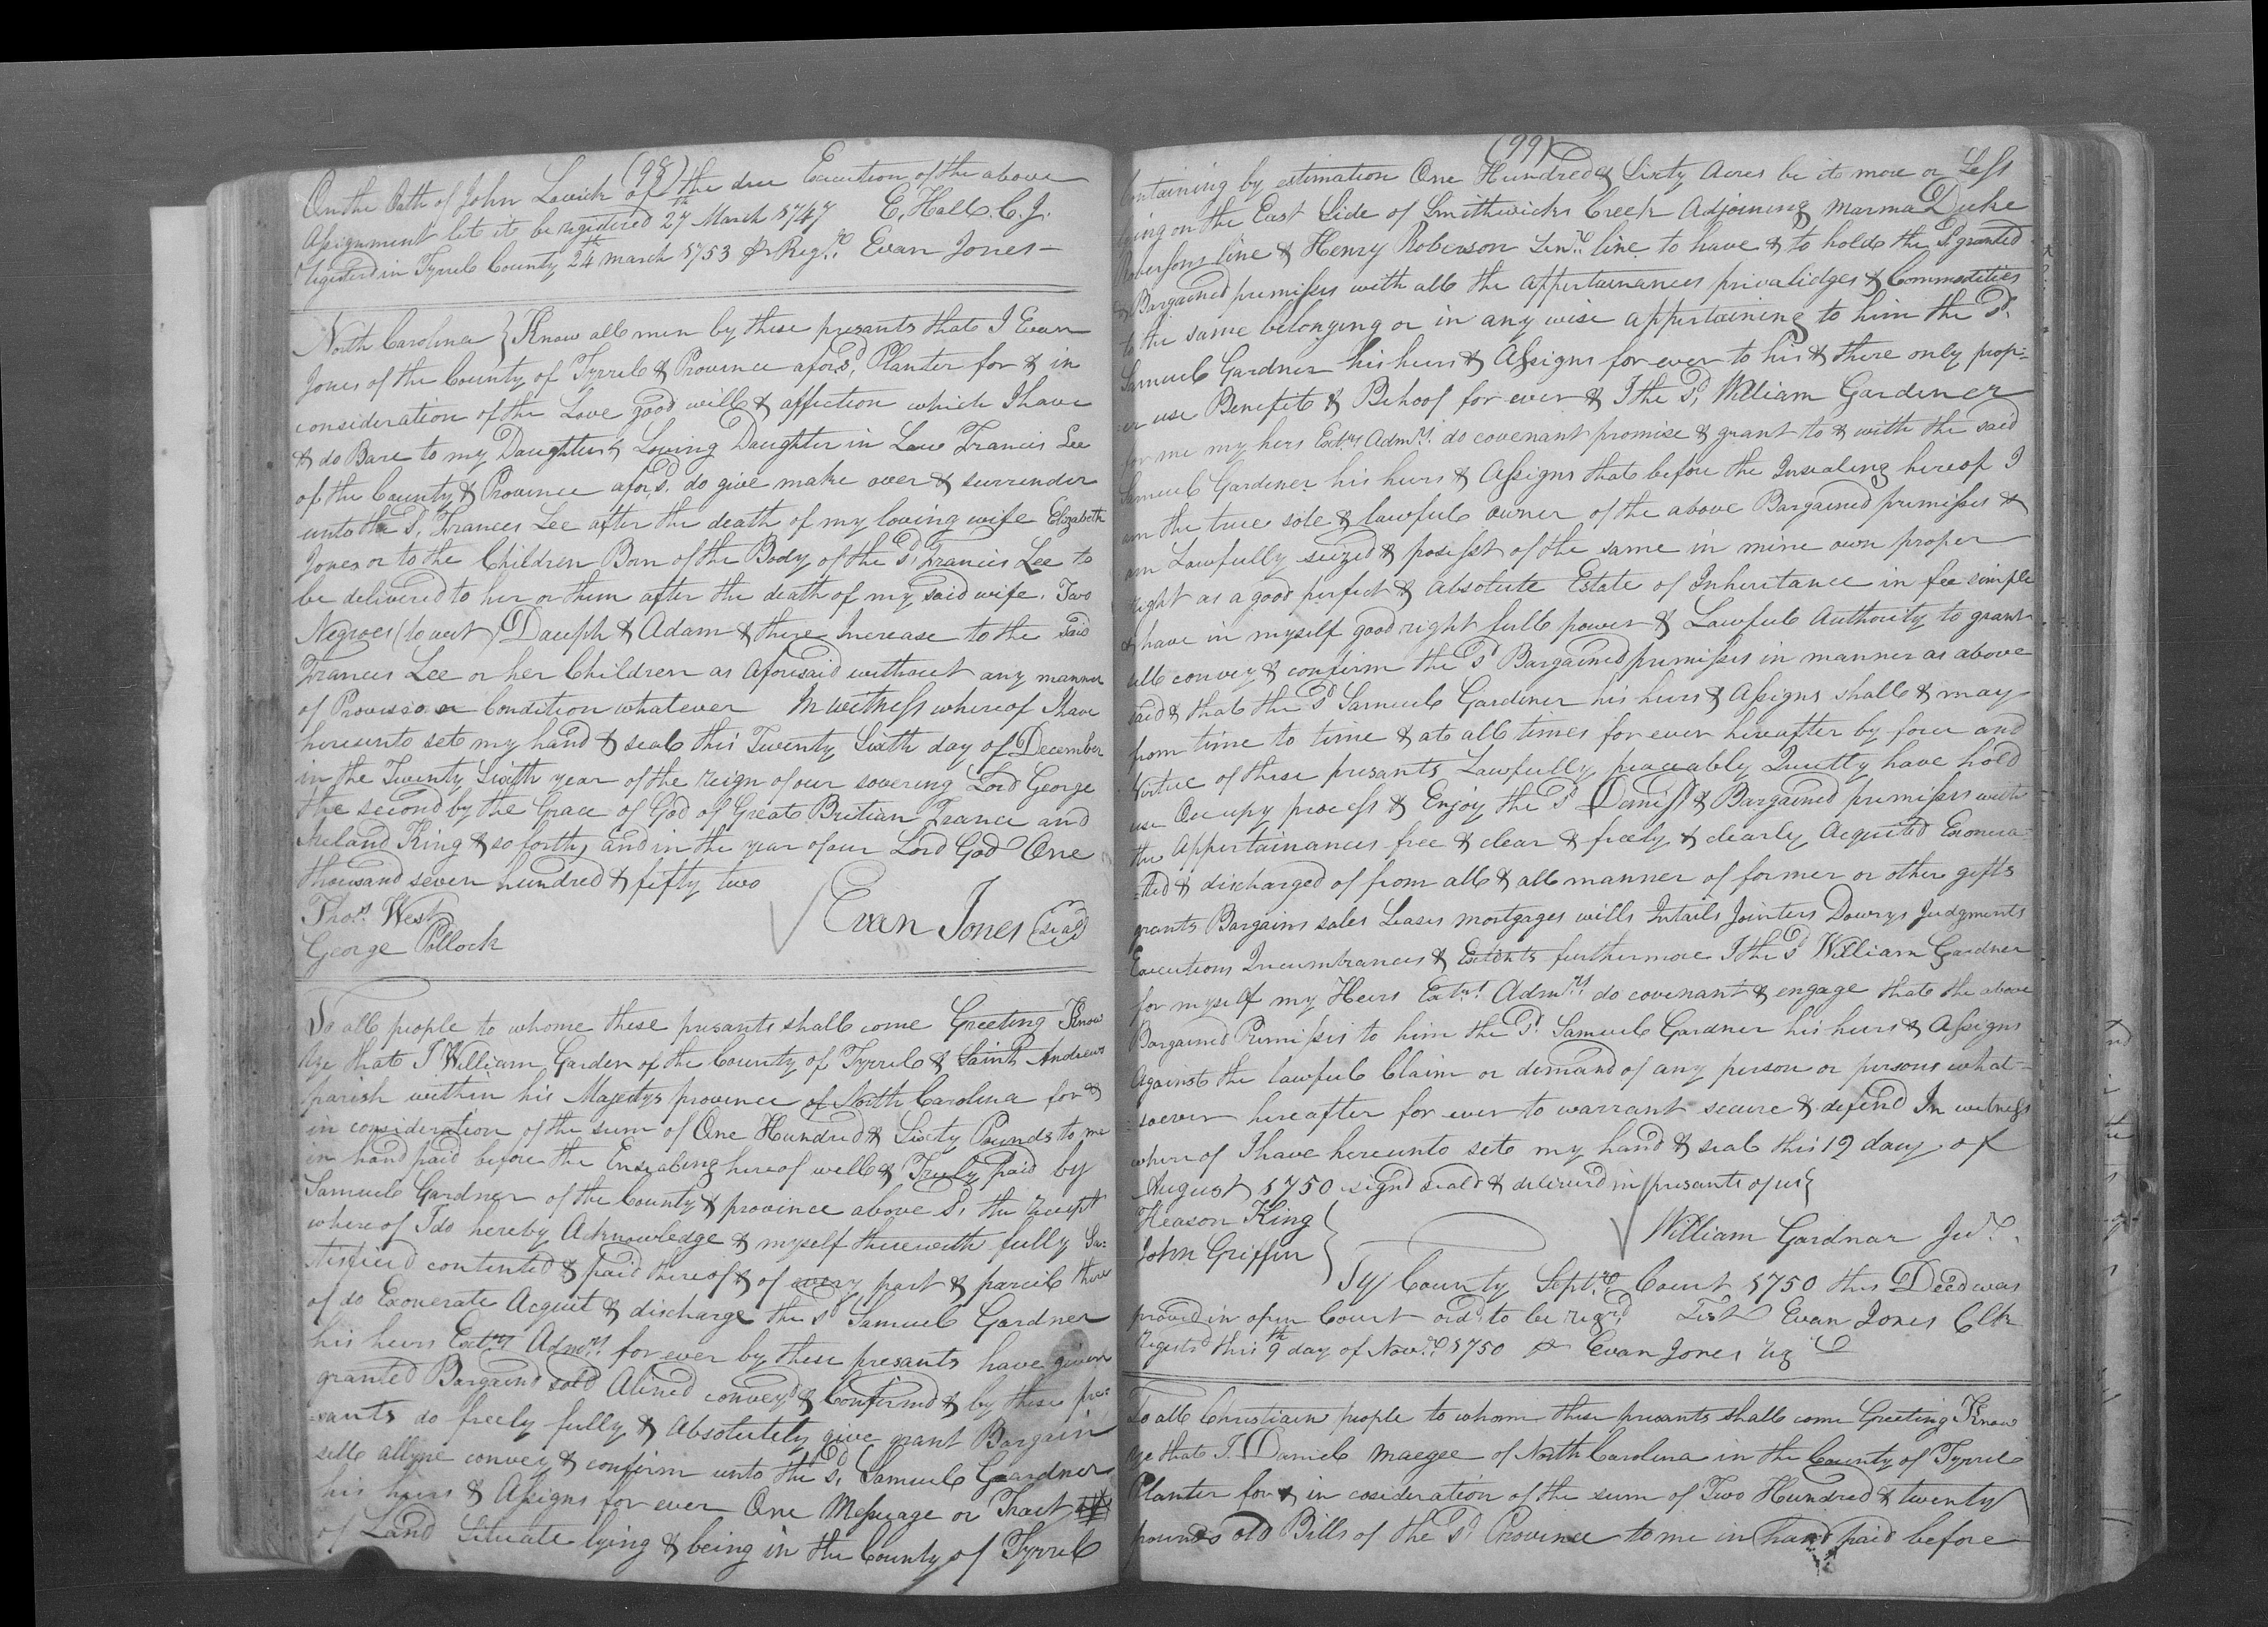 (98)
On the Oath of John Lovick of the due Execution of the above
Assignment let it be registered 27th March 1747 E. Hall C. J.
Registerd in Tyrrel County 24th march 1753 pr Regr. Evan Jones
North Carolina } Know all men by these presants that I Evan
Jones of the County of Tyrrel & Province afors'd, Planter for & in
consideration of the Love good will & affection which I have
& do Bare to my Daughter & Loving Daughter in Law Francis Lee
of the County & Province afors'd. do give make over & surrender
unto the Sd. Frances Lee after the death of my loving wife Elizabeth
Jones or to the Children Born of the Body of the Sd. Francis Lee to
be delivered to her or them after the death of my said wife. Two
Negroes (to wit) Dauph & Adam & there Increase to the said
Frances Lee or her Children as aforesaid without any manner
of Provision or Condition whatever In witness whereof I have
hereunto set my hand & seal this Twenty Sixth day of December
in the Twenty Sixth year of the reign of our sovering Lord George
the second by the Grace of God of Great Britian France and
Ireland King & so forth, and in the year of our Lord God One
thousand seven hundred & fifty two
Thos. West Evan Jones (seal)
George Pollock
To all people to whome these presants shall come Greeting Know
Ye that I William Garden of the County of Tyrrel & Saint Andrews
parish within his Majestys provence of North Carolina for &
in consideration of the sum of One Hundred & Sixty Pounds to me
in hand paid before the Ensealing hereof well & Truly paid by
Samuel Gardner of the County & province above Sd. the receipt
whereof I do hereby Acknowledge & myself therewith fully Sa-
tisfied contented & paid thereof & of every part & parcel there
of do Exonerate Acquit & discharge the sd Samuel Gardner
his heirs Extrs Admrs. for ever by these presants have given
granted Bargaind sold Alined conveyd & Confirmd & by these pre-
-sants do freely fully & Absolutely give grant Bargain
sell allyne convey & confirm unto the sd. Samuel Gaardner
his heirs & Assigns for ever One Messuage or Tract
of Land Situate lying & being in the County of Tyrrel
(99)
Containing by estimation One Hundred & Sixty Acres be it more or Less
lying on the East Side of Smithwicks Creek Adjoining Marma Duke
Robersons line & Henry Roberson Senr. line to have & to hold the Sd granted
& Bargained premisses with all the appertainances privalidges & Commodities
to the same belonging or in any wise appertaining to him the Sd.
Samuel Gardner his heirs & Assigns for ever to his & there only prop-
-er use Benefit & Behoof for ever & I the Sd, William Gardener
for me my hers Extrs Admrs. do covenant promise & grant to & with the said
Samuel Gardener his heirs & Assigns that before the Insealing hereof I
am the true sole & lawful owner of the above Bargained premisses &
am Lawfully seized & posesst of the same in mine own proper
right as a good perfect & absolute Estate of Inheritance in fee simple
& have in myself good right full power & Lawful Authority to grant
sell convey & confirm the sd Bargained premisses in manner as above
said & that the sd Samuel Gardener his heirs & Assigns shall & may
from time to time & at all times for ever hereafter by force and
Virtue of these presants Lawfully peaceably Quietly have hold
use Occupy process & Enjoy the sd Demisst & Bargained premisses with
the Appertainances free & clear & freely & clearly Acquited Exonera-
-ted & discharged of from all & all manner of former or other gifts
grants Bargains sales Leases mortgages wills Intails Jointers Dowrys Judgments
Executions Incumbrances & Extents furthermore I the sd William Gardner
for myself my Heirs Extrs. Admrs. do covenant & engage that the above
Bargained Premisses to him the sd. Samuel Gardner his heirs & Assigns
Against the lawful Claim or demand of any person or persons what-
-soever hereafter for ever to warrant secure & defend In witness
where of I have hereunto set my hand & seal this 19 day of
August 1750 signd seald & deliverd in presants of us }
Heason King William Gardnar Jur.
John Griffin
Tys County Septr. Court 1750 this Deed was
proved in open Court ord. to be regrd. Test Evan Jones Clk
Registd this 9th day of Novr. 1750 pr Evan Jones reg
To all Christiain people to whom these presants shall come Greeting Know
ye that I. Daniel Maegee of North Carolina in the County of Tyrrel
Planter for & in cosideration of the sum of Two Hundred & twenty
pounds old Bills of the sd Province to me in hand paid before